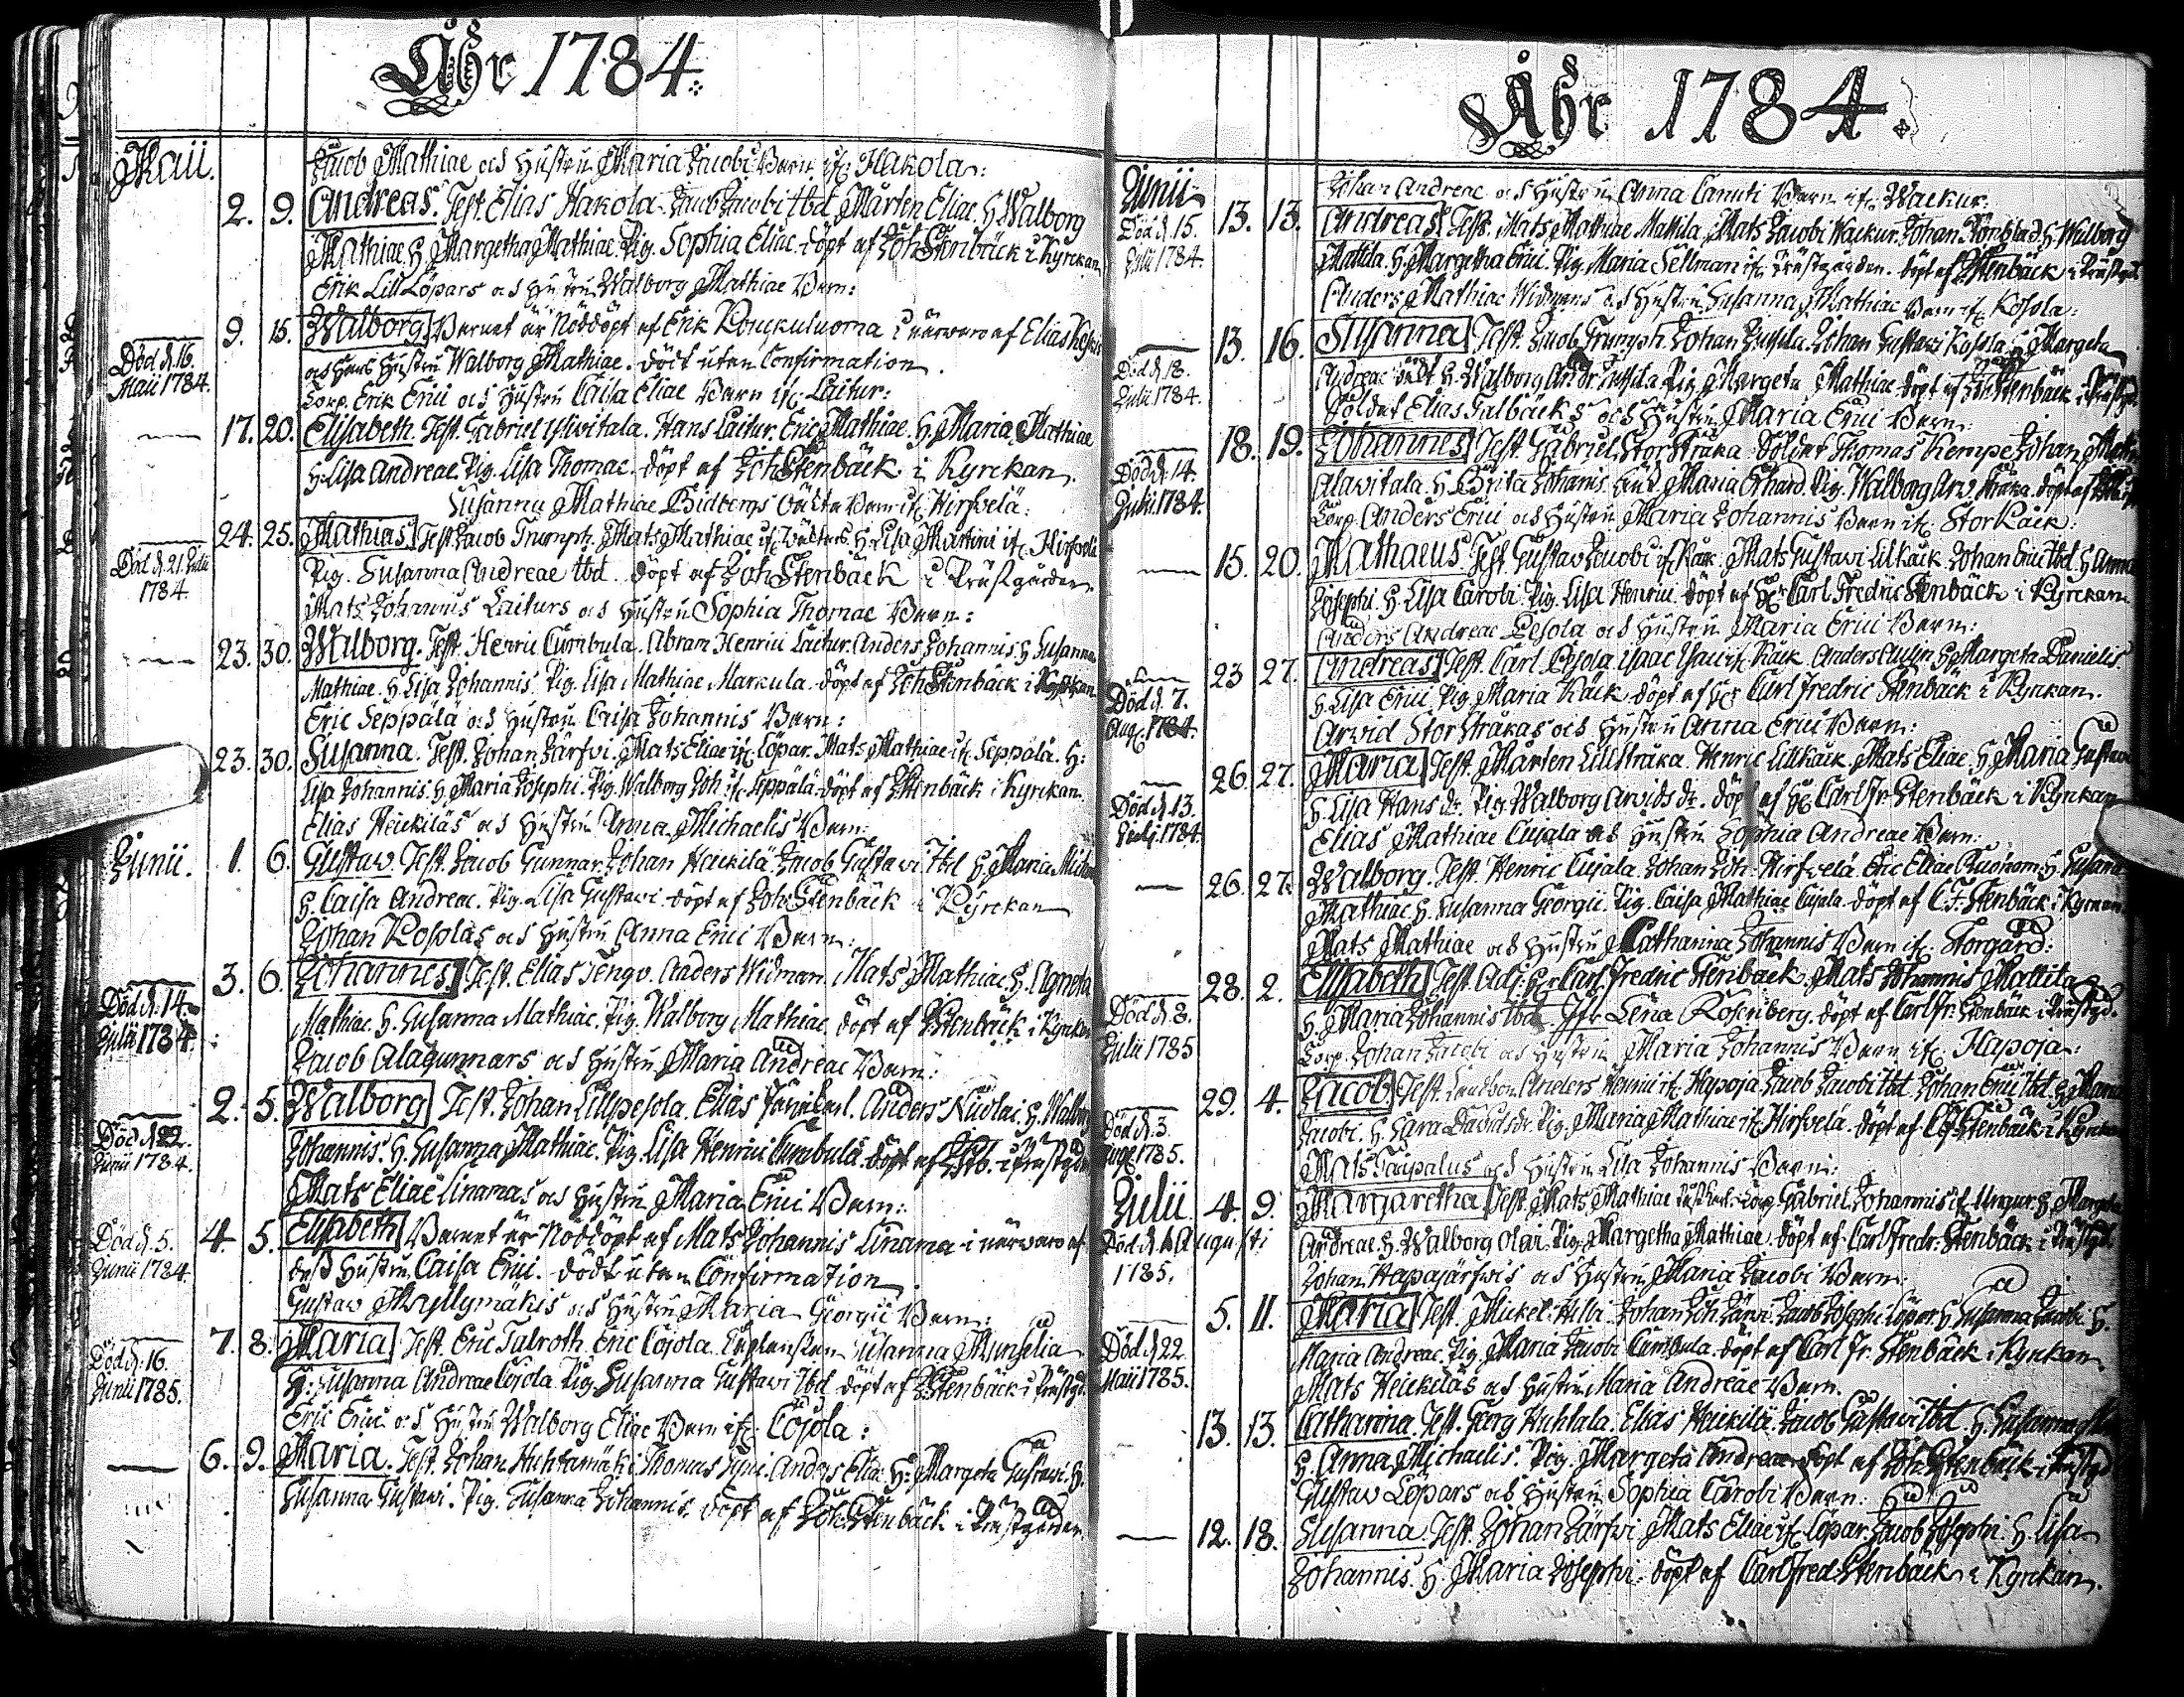 Åhr 1784.
Maii.
Jacob Mathiae och Hustru Maria Jacobi Barn if. Hakola:
2. 9. Andreas. Test. Elias Hakola. Jacob Jacobi ibd. Mårten Eliae. H. Walborg
Mathiae. H. Margetha Mathiae. Pig. Sophia Eliae. döpt af Joh. Stenbäck i Kyrckan
Erik Lill Löpars och Hustru Walborg Mathiae Barn:
9. 15. Walborg Barnet är Nöddöpt af Erik i närvaro af Elias
Död d. 16. Maii 1784.
och hans Hustru Walborg Mathiae. dödt utan Confirmation.
Corp. Erik Erici och Hustru Caisa Eliae Barn if. Laitur:
17. 20. Elisabeth. Test. Gabriel Ylivitala. Hans Laitur. Eric Mathiae. H. Maria Mathiae
H. Lisa Andreae. Pig. Lisa Thomae. döpt af Joh. Stenbäck i Kyrckan.
Susanna Mathiae Bidbergs oächta Barn if. Hirfvelä:
24. 25. Mathias Test. Jacob Trumph. Mats Mathiae if. H. Lisa Martini if. Hirfvelä
Död d. 21. Julii 1784.
Pig. Susanna Andreae ibd. döpt af Joh. Stenbäck i Prästgården
Mats Johannis Laiturs och Hustru Sophia Thomae Barn:
23. 30. Walborg. Test. Henric Cumbula. Abram Henrici Laitur. Anders Johannis. H. Susanna
Mathiae. H. Lisa Johannis. Pig. Lisa Mathiae Markula. döpt af Joh. Stenbäck i Kyrckan.
Eric Seppälä och Hustru Caisa Johannis Barn:
23. 30. Susanna. Test. Johan Järfvi. Mats Eliae if. Löpar. Mats Mathiae if. Seppälä. H:
Lisa Johannis. H. Maria Josephi. Pig. Walborg Joh. if. Seppälä. döpt af J. Stenbäck i Kyrckan.
Elias Heickiläs och Hustru Anna Michaelis Barn:
Junii. 1. 6. Gustaw Test. Jacob Gunnar. Johan Heickilä. Jacob Gustavi Ibd. H. Maria
H. Caisa Andreae. Pig. Lisa Gustavi. döpt af Joh. Stenbäck i Kyrckan
Johan Kosolas och Hustru Anna Erici Barn:
3. 6. Johannes. Test. Elias Tengv. Anders Widman. Mats Mathiae H. Agneta
Död d. 14. Julii 1784.
Mathiae. H. Susanna Mathiae. Pig. Walborg Mathiae. döpt af J. Stenbäck i Kyrckan
Jacob Alagunnars och Hustru Maria Andreae Barn:
2. 5. Walborg Test. Johan Lillpesola. Elias Anders Nicolai. H. Walborg
Död d. 22. Junii 1784.
Johannis. H. Susanna Mathiae. Pig. Lisa Henrici Cumbula. döpt af i Prästgården
Mats Eliae Linamas och Hustru Maria Erici Barn:
4. 5. Elisabeth Barnet är Nöddöpt af Mats Johannis Linama i närvaro af
Död d. 5. Junii 1784.
dess Hustru Caisa Erici. dödt utan Confirmation
Gustav Myllymäkis och Hustru Maria Georgii Barn:
7. 8. Maria Test. Eric Talroth. Eric Lojola. Susanna
Död d. 16. Junii 1785.
H. Susanna Andreae Pig. Susanna Gustavi Ibd. döpt af J. Stenbäck i Prästgd.
Eric Erici och Hustru Walborg Eliae Barn if. Lojola:
6. 9. Maria. Test. Johan Huhtamäki. Thomas Anders Eliae. H: Margeta Gustavi. H.
Susanna Gustavi. Pig. Susanna Johannis. döpt af Joh. Stenbäck i Prästgården.
Åhr 1784.
Junii
Johan Andreae och Hustru Anna Canuti Barn if. Wackur:
13. 13. Andreas Test. Mats Mathiae Mattila. Mats Jacobi Wackur. Johan H. Walborg
Död d. 15. Julii 1784.
Mattila. H. Margetha Erici. Pig. Maria Sellman if. Prästgården. döpt af J. Stenbäck i Prästgd.
Anders Mathiae Widmans och Hustru Susanna Mathiae Barn if. Kosola:
13. 16. Susanna Test. Jacob Trumph. Johan Jussila. Johan Gustavi Kosola. H. Margeta
Död d. 18. Julii 1784.
Andreae H. Walborg Jussila Pig. Margeta Mathiae. döpt af Joh. Stenbäck i Prästgd.
Soldat Elias Talbäcks och Hustru Maria Erici Barn:
18. 19. Johannes Test. Gabriel Storstråka. Soldat Thomas Kempe. Johan
Död d. 14. Julii 1784.
Alavitala. H. Brita Johannis. Maria Pig. Walborg
Corp. Anders Erici och Hustru Maria Johannis Barn if. Storkäck:
15. 20. Mathaeus. Test. Gustav Jacobi if. Käck. Mats Gustavi Lillkäck. Johan Erici ibd. H. Anna
Josephi. H. Lisa Caroli. Pig. Lisa Henrici. döpt af Hr Carl Fredric Stenbäck i Kyrckan
Anders Andreae Pesola och Hustru Maria Erici Barn:
23 27. Andreas Test. Carl Pesola. Isaac if. Käck. Anders H. Margeta Danielis
Död d. 7. Aug. 1784.
H. Lisa Erici. Pig. Maria Käck. döpt af Hr Carl Fredric Stenbäck i Kyrckan.
Arvid Storstråkas och Hustru Anna Erici Barn:
26. 27. Maria Test. Mårten Lillstråka. Henric Lillkäck. Mats Eliae. H. Maria Gustavi
Död d. 13. 1784.
H. Lisa Hans dr. Pig. Walborg Arvids dr. döpt af Hr Carl Fr. Stenbäck i Kyrckan
Elias Mathiae Cujala och Hustru Sophia Andreae Barn:
26. 27. Walborg. Test. Henric Cujala. Johan Joh. Hirfvelä. Eric Eliae H. Susanna
Mathiae H. Susanna Georgii. Pig. Caisa Mathiae Cujala. döpt af C. F. Stenbäck i Kyrckan.
Mats Mathiae och Hustru Catharina Johannis Barn if. Storgård:
28. 2. Elisabeth Test. Adj. Hr Carl Fredric Stenbäck. Mats Johannis Mattila
Död d. 8. Julii 1785
H. Maria Johannis ibd. Jfr Lena Rosenberg. döpt af Carl Fr. Stenbäck i Prästgd.
Corp. Johan Jacobi och Hustru Maria Johannis Barn if. Hapoja:
29. 4. Jacob Test. Anders Henrici if. Hapoja. Jacob Jacobi Ibd. Johan Erici Ibd. H. Maria
Död d. 3. 1785.
Jacobi. H. Sara Davids dr. Pig. Maria Mathiae if. Hirfvelä. döpt af C. F. Stenbäck i Kyrckan
Mats Taipalus och Hustru Lisa Johannis Barn:
Julii 4. 9. Margaretha Test. Mats Mathiae Corp. Gabriel Johannis if. H. Margeta
Död d. Augusti 1785.
Andreae. H. Walborg Olai. Pig. Margetha Mathiae. döpt af Carl Fredr. Stenbäck i Prästgd.
Johan Hapajärfvis och Hustru Maria Jacobi Barn:
5. 11. Maria Test. Mickel Johan Joh. Järvi. Jacob Josephi Löpar. H. Susanna Jacobi. H.
Död d. 22. Maii 1785.
Maria Andreae. Pig. Maria Jacobi Cumbula. döpt af Carl Fr. Stenbäck i Kyrckan.
Mats Heickiläs och Hustru Maria Andreae Barn.
13. 13. Catharina. Test. Georg Huhtala. Elias Heickilä. Jacob Gustavi Ibd. H. Susanna
H. Anna Michaelis. Pig. Margeta Andreae. döpt af Joh. Stenbäck i Prästgd
Gustav Löpars och Hustru Sophia Caroli Barn:
12. 18. Susanna Test. Johan Järfvi. Mats Eliae if. Löpar. Jacob Josephi. H. Lisa
Johannis. H. Maria Josephi. döpt af Carl Fred. Stenbäck i Kyrckan.